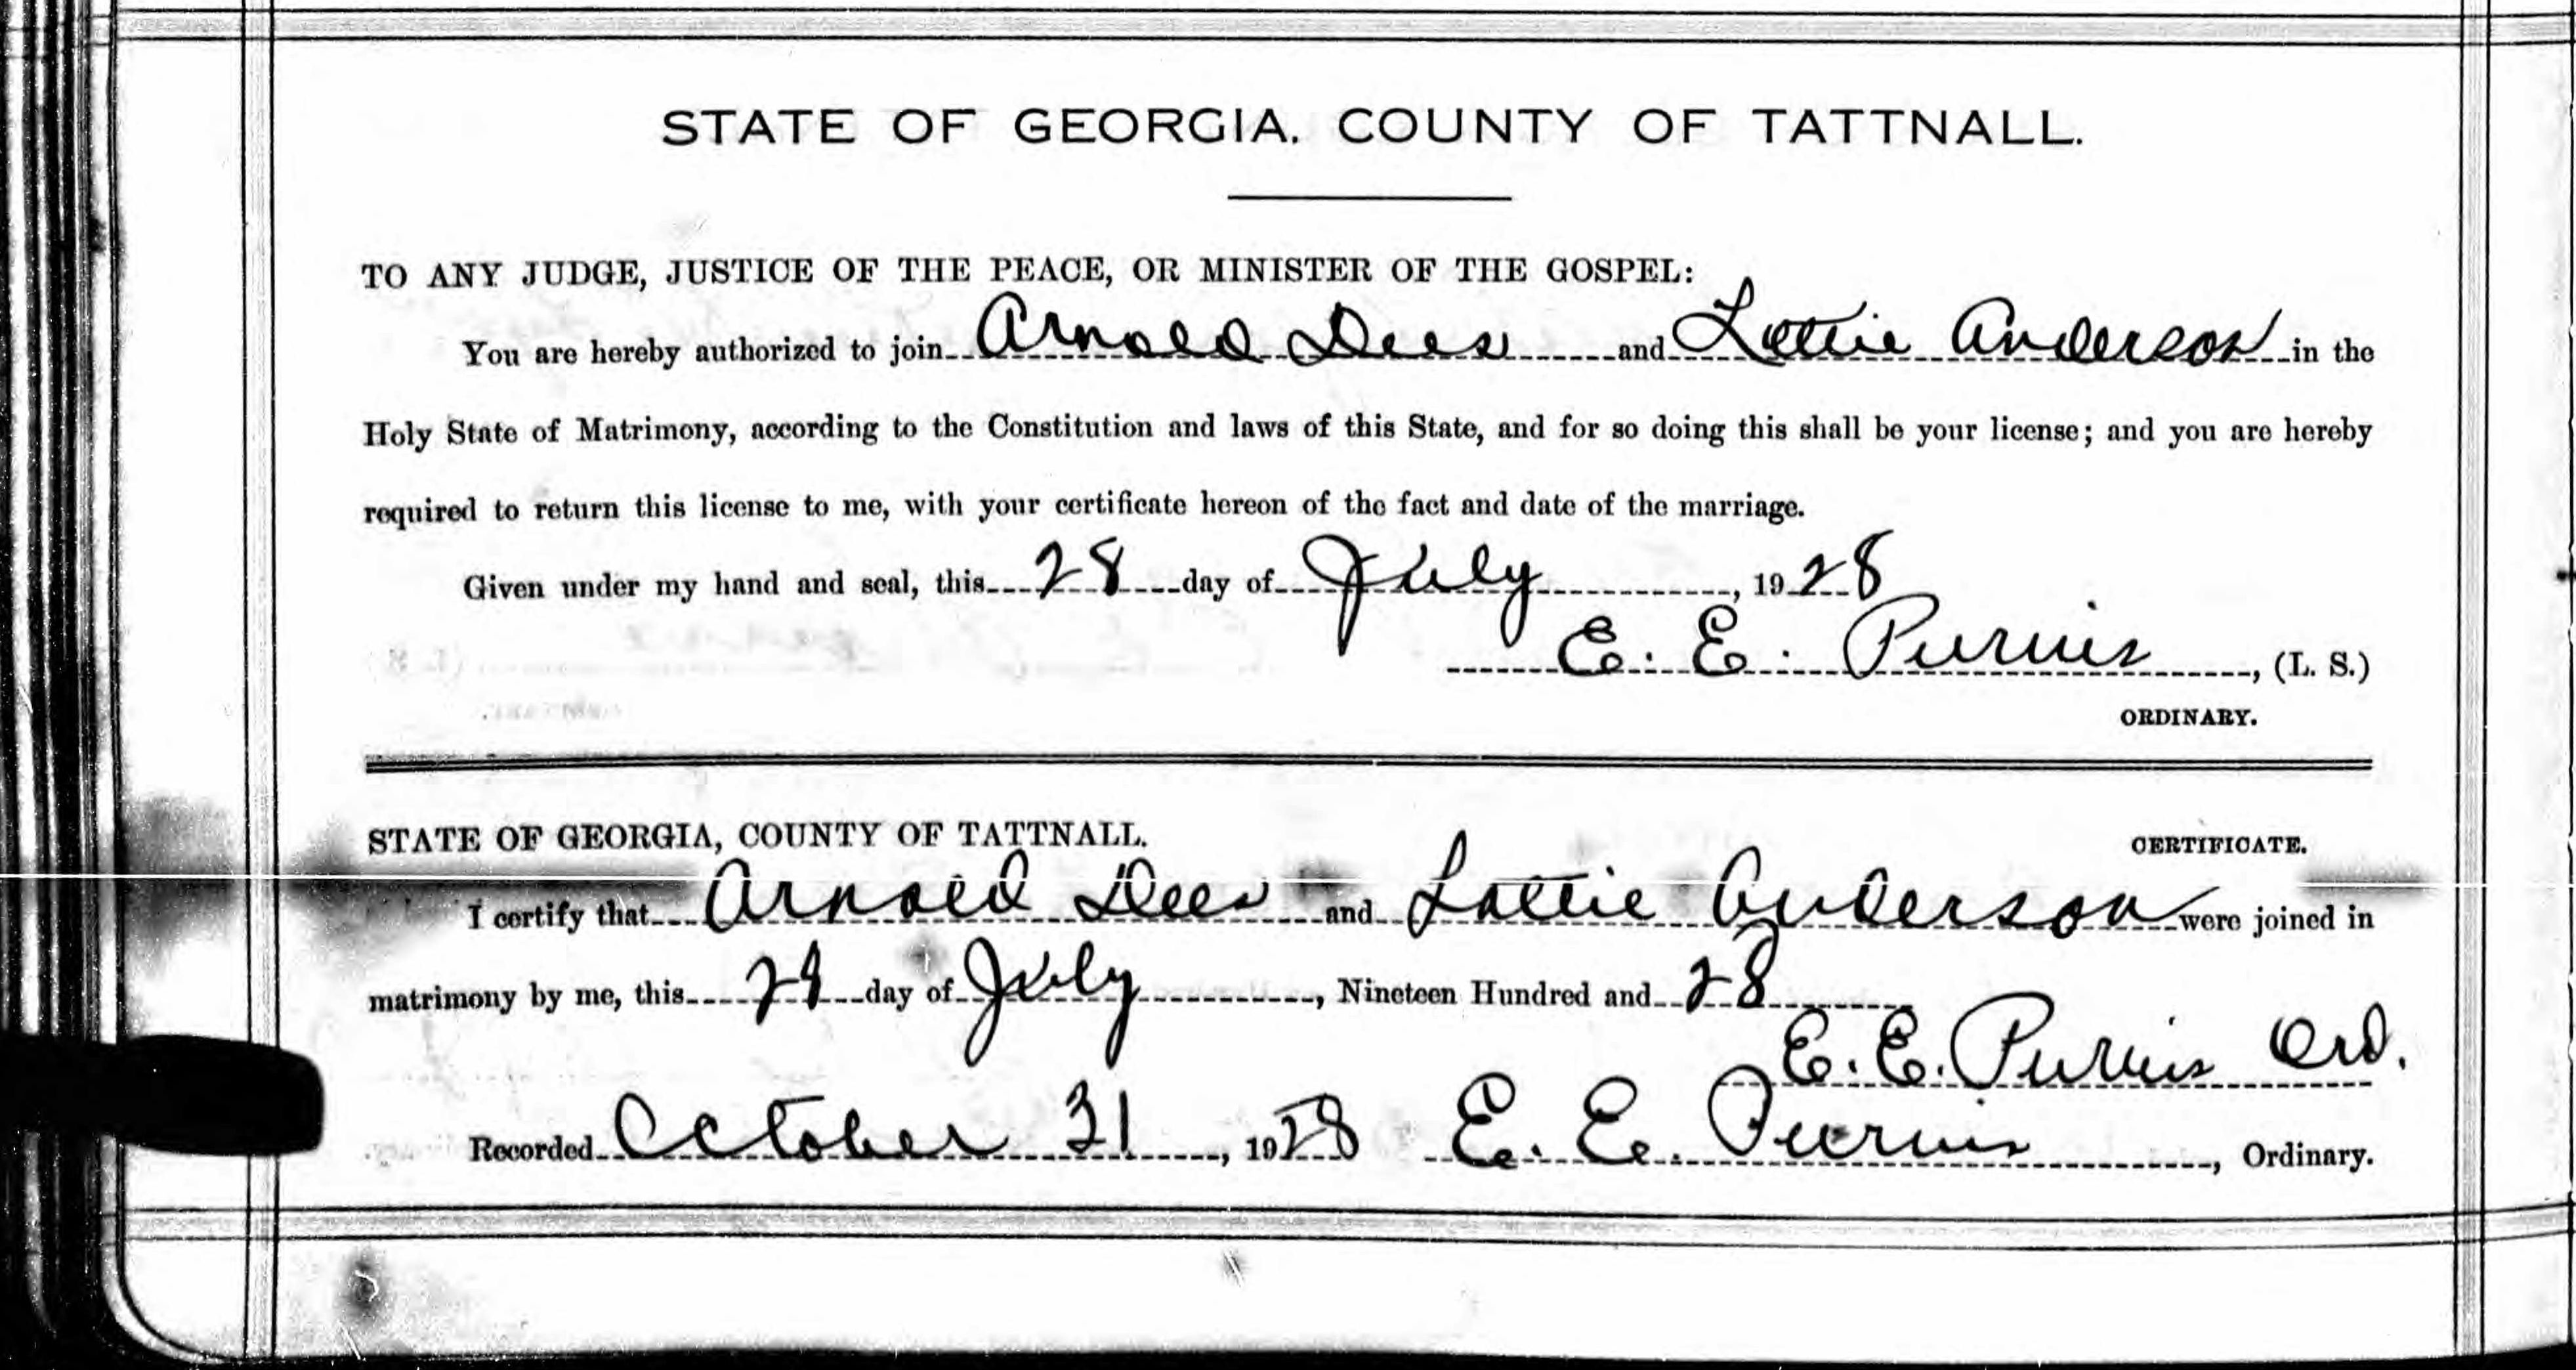 STATE OF GEORGIA. COUNTY OF TATTNALL.
TO ANY JUDGE, JUSTICE OF THE PEACE, OR MINISTER OF THE GOSPEL:
You are hereby authorized to join Arnold Dees and Lottie Anderson in the
Holy State of Matrimony, according to the Constitution and laws of this State, and for so doing this shall be your license; and you are hereby
required to return this license to me, with your certificate hereon of the fact and date of the marriage.
Given under my hand and seal, this 28 day of July, 1928
E. E. Purvis, (L. S.)
ORDINARY.
STATE OF GEORGIA, COUNTY OF TATTNALL. CERTIFICATE.
I certify that Arnold Dees and Lottie Anderson were joined in
matrimony by me, this day of July, Nineteen Hundred and 28
E. E. Purvis Ord.
Recorded October 31, 1928 E. E. Purvis, Ordinary.